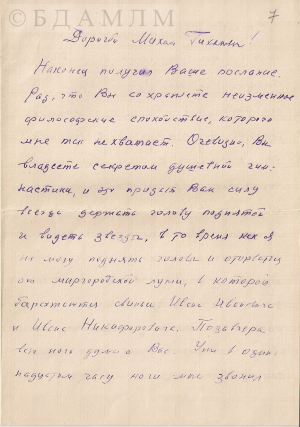 © БДАМЛМ
7
Дорогой Михаил Тихонович!
Наконец получил Ваше послание.
Рад, что Вы сохраняете неизменное
философское спокойствие, которого
мне так не хватает. Очевидно, Вы
владеете секретом душевной гим-
настики, и это придает Вам силу
всегда держать голову поднятой
и видеть звезды, в то время как я
не могу поднять головы и оторваться
от миргородской лужи, в которой
барахтаются свиньи Ивана Ивановича
и Ивана Никифоровича. Позавчера
всю ночь думал о Вас. Уже в один-
надцатом часу ночи мне звонил